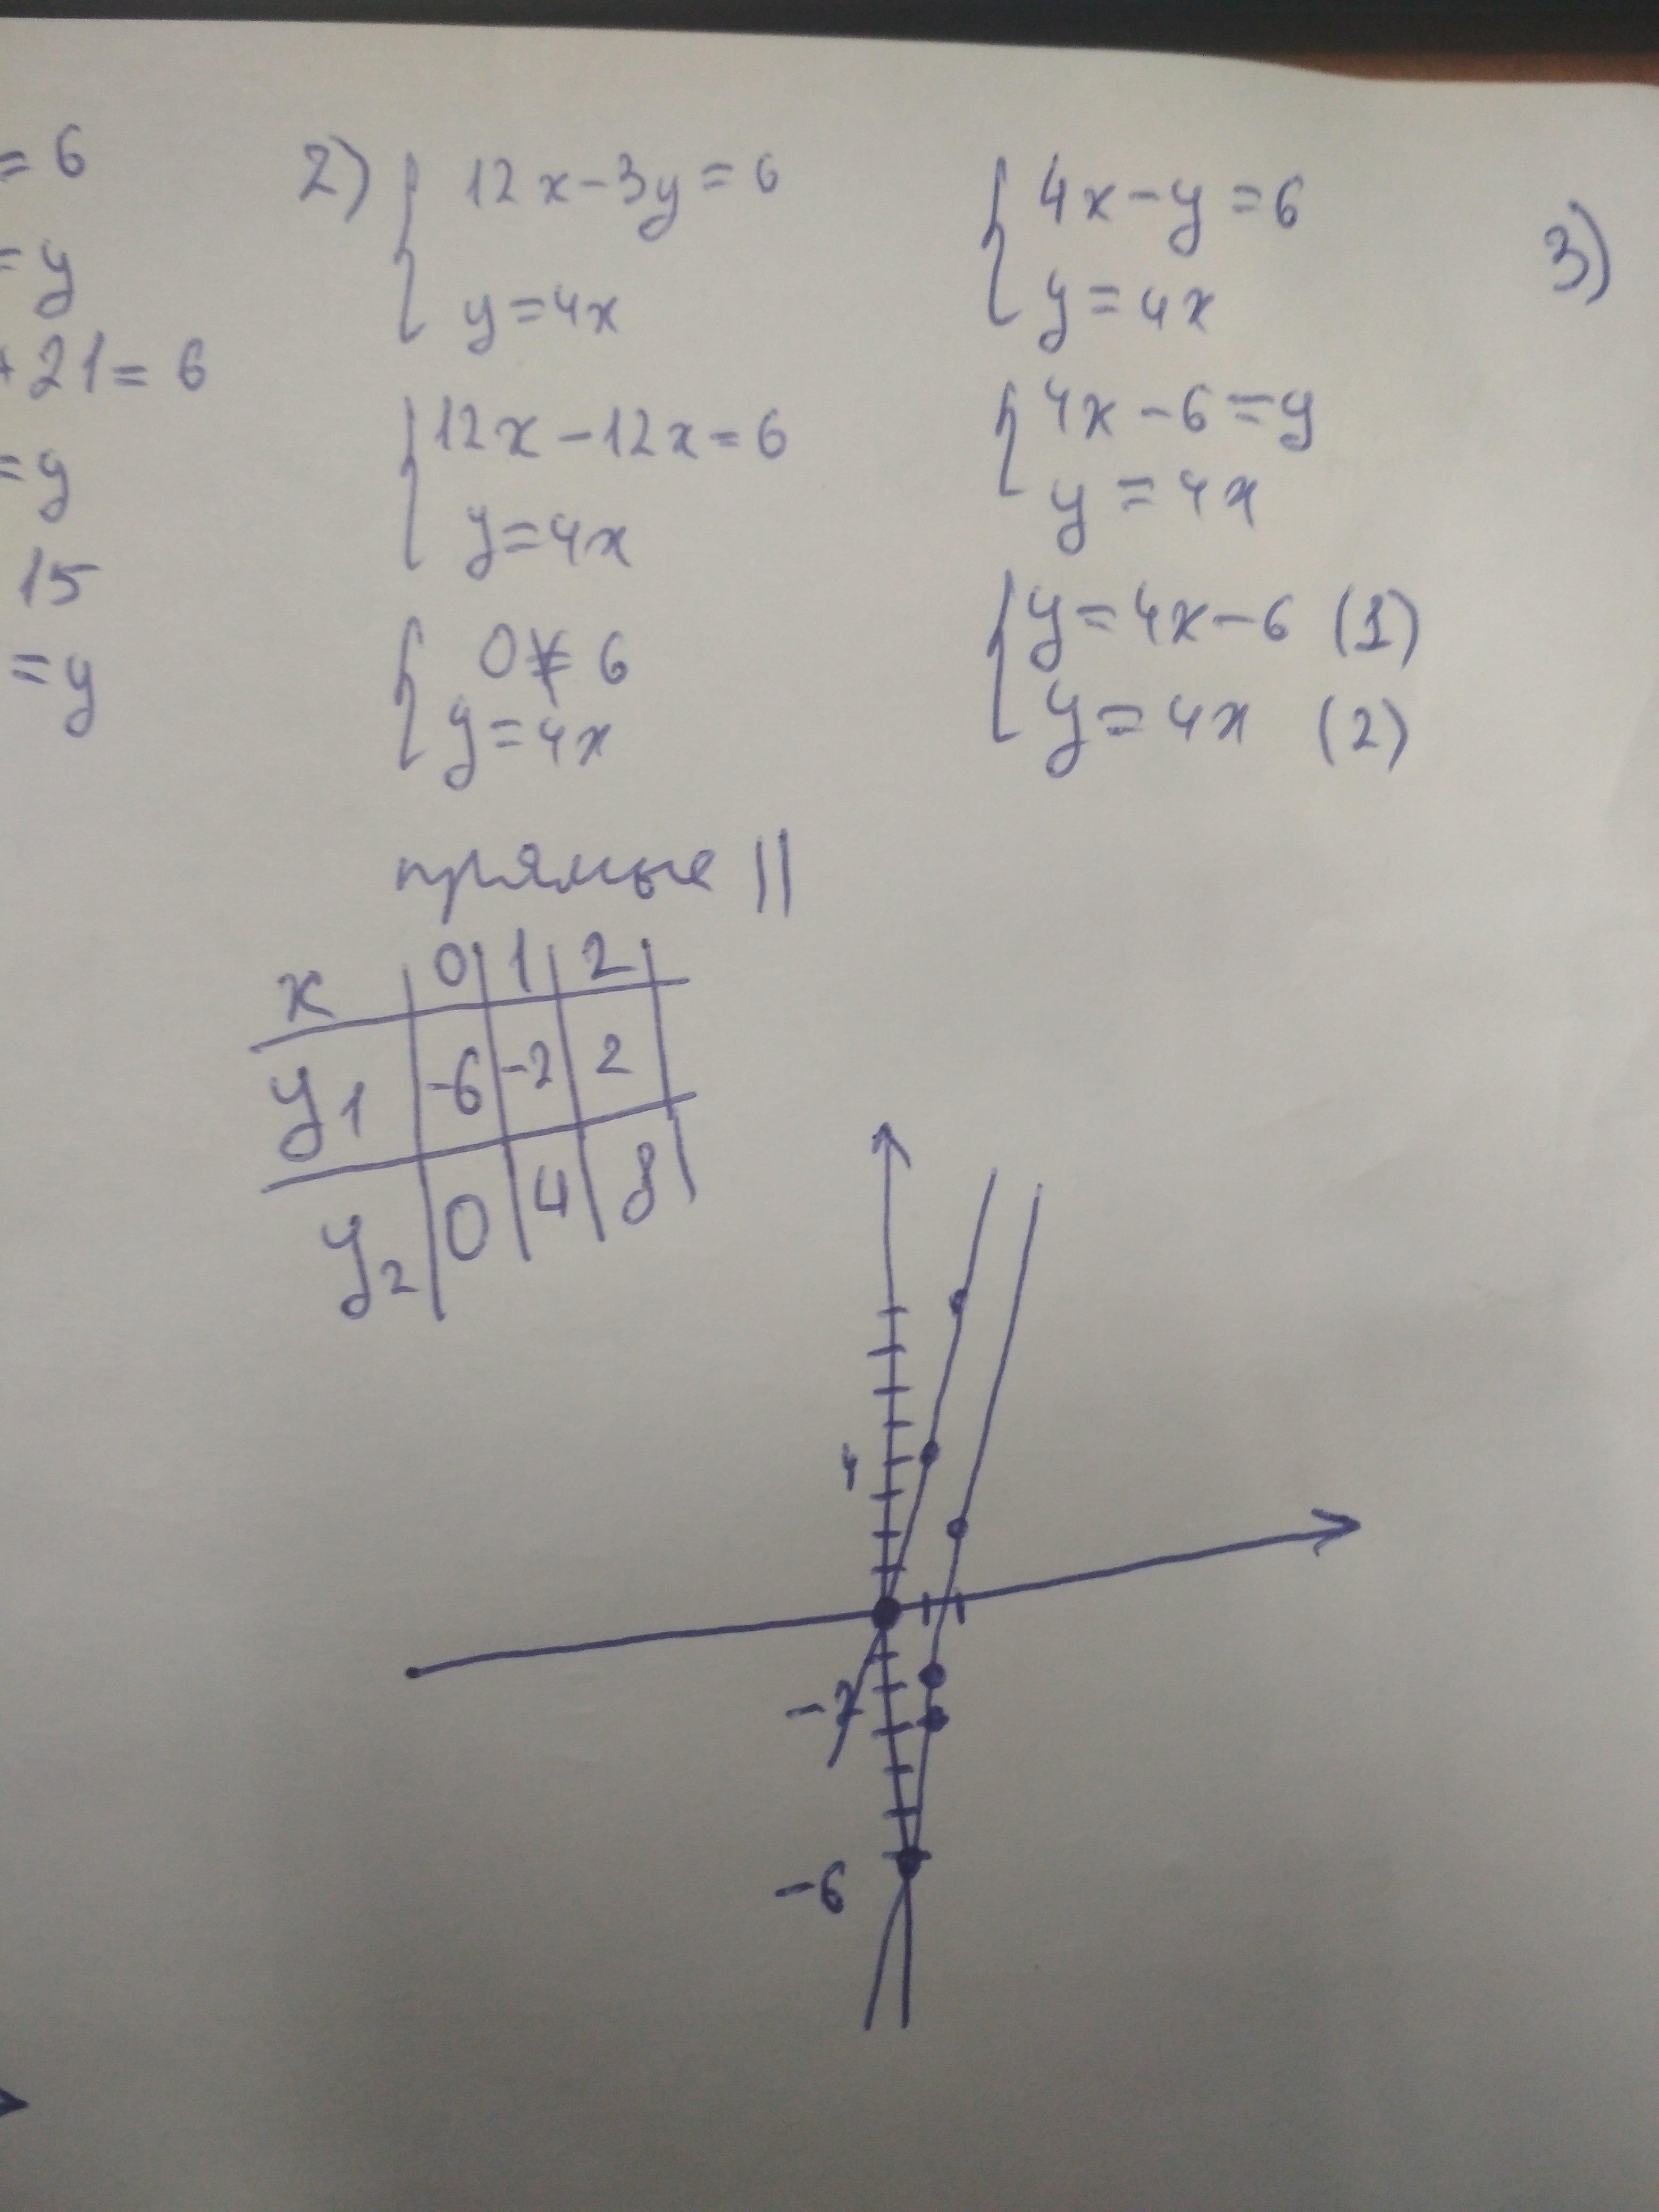 = 6
= y
+ 21 = 6
= y
15
= y
2) { 12x - 3y = 6
y = 4x
{ 12x - 12x = 6
y = 4x
{ 0 ≠ 6
y = 4x
{ 4x - y = 6
y = 4x
{ 4x - 6 = y
y = 4x
{ y = 4x - 6 (1)
y = 4x (2)
3)
прямые ||
x | 0 | 1 | 2 |
y1 | -6 | -2 | 2 |
y2 | 0 | 4 | 8 |
4
-2
-6